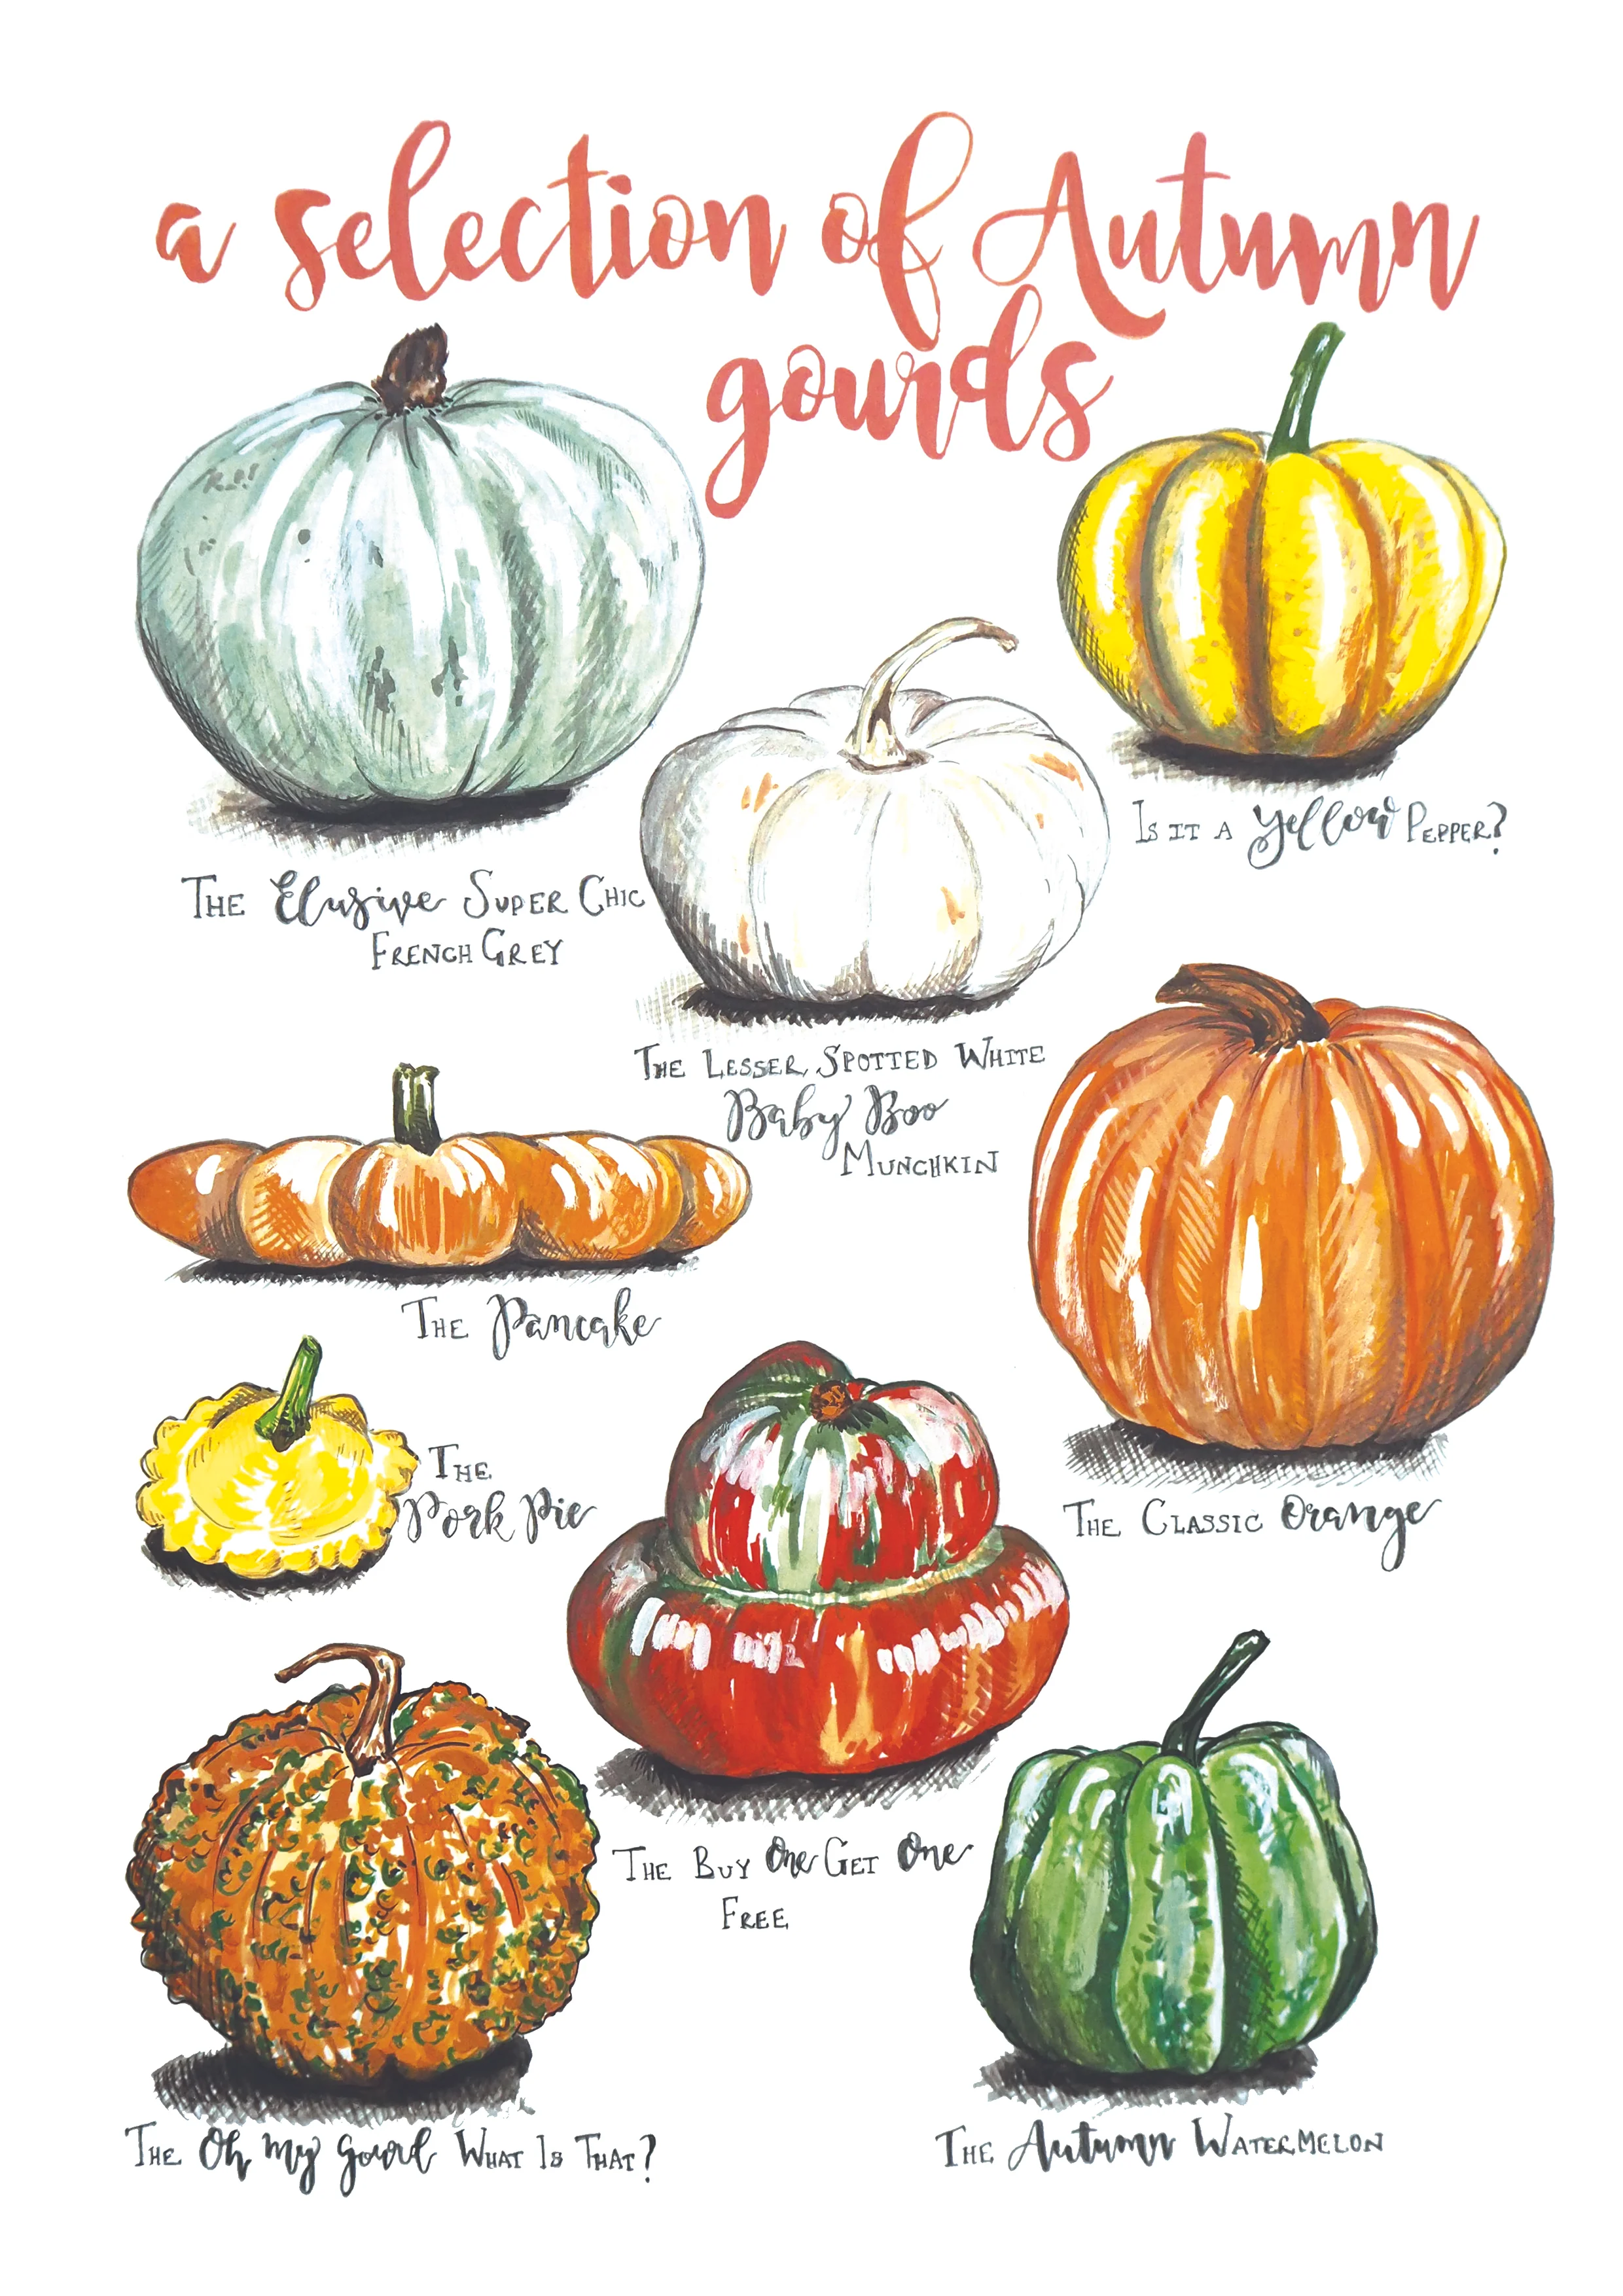 a selection of Autumn
gourds
Is it a Yellow Pepper?
The Elusive Super Chic
French Grey
The Lesser Spotted White
Baby Boo
Munchkin
The Pancake
The
Pork Pie
The Classic Orange
The Buy One Get One
Free
The Oh My Gourd What Is That?
The Autumn Watermelon